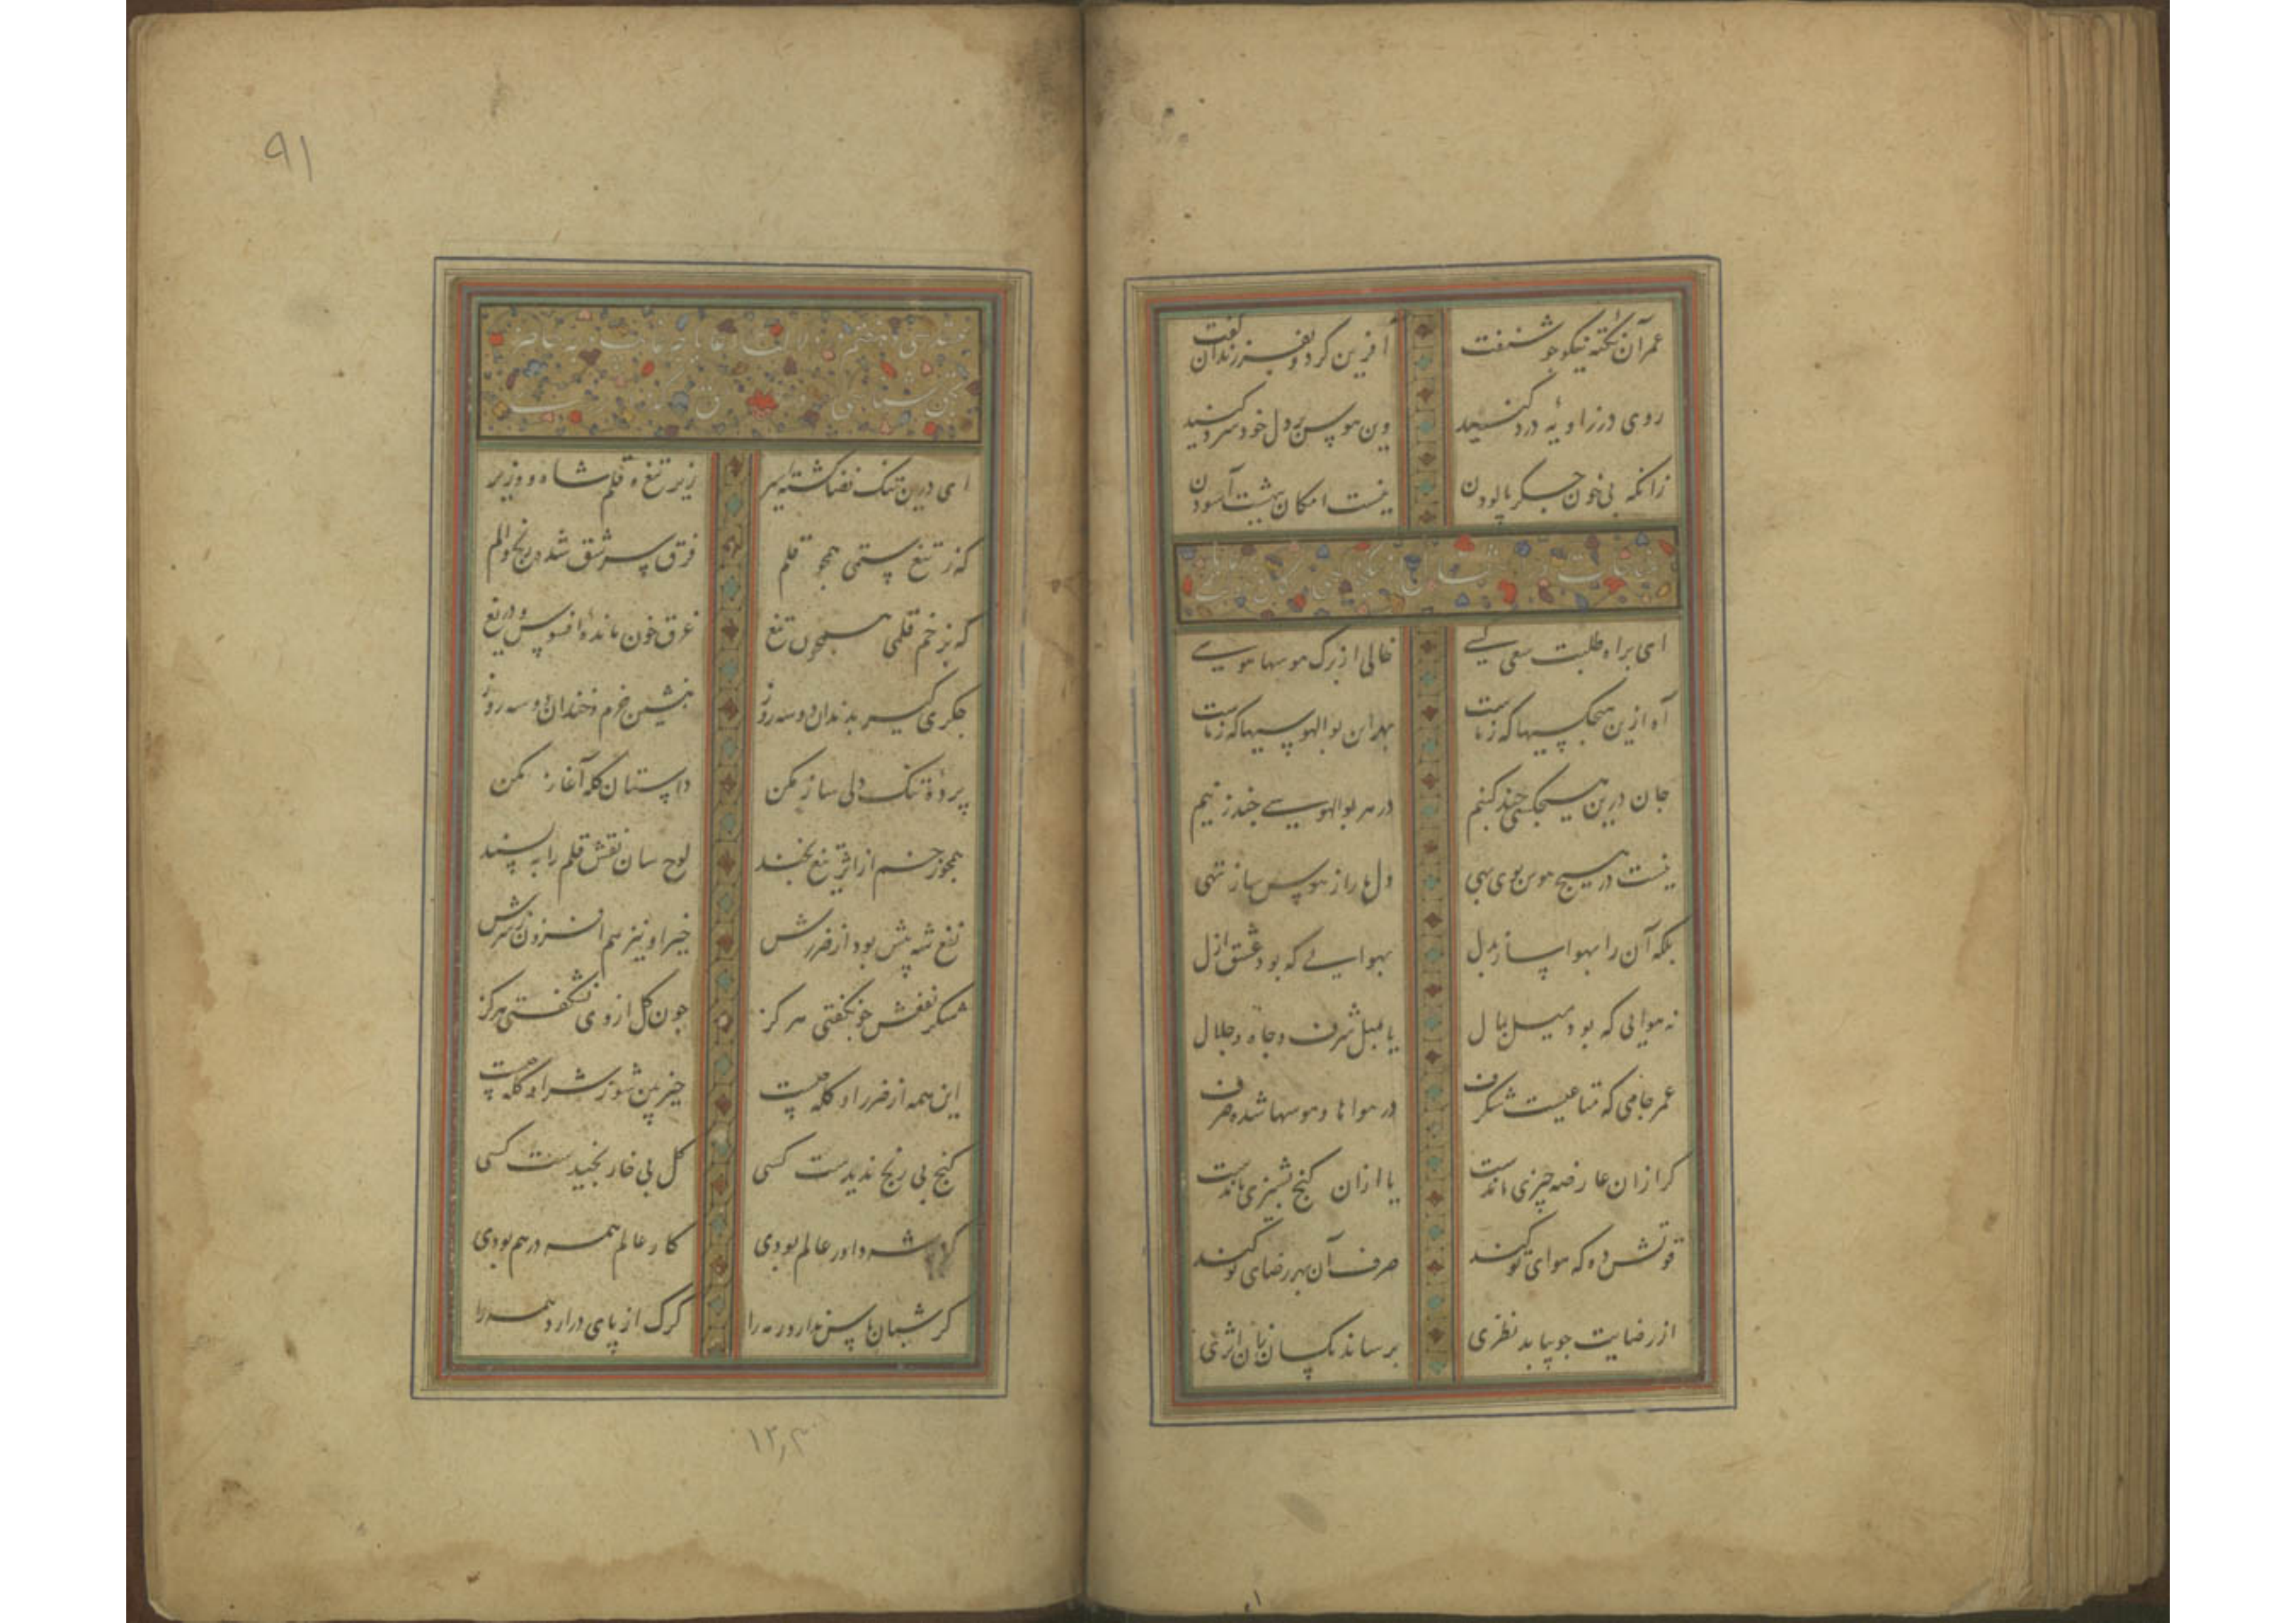 عمر آن نکته نیکو چو شنفت آفرین کرد و بفرزندان گفت
روی در زاویهٔ درد کنید وین هوس بر دل خود سرد کنید
زانکه بی خون جگر پالودن نیست امکان بهشت آسودن
ای براه طلبت سعی کسی خالی از برگ هوسها هوسی
آه ازین هیچکسیها که زماست بهر این بوالهوسیها که زماست
جان درین هیچکسی چند کنیم در هر بوالهوسی چند زنیم
نیست در هیچ هوس بوی بهی دل ما را ز هوس ساز تهی
بلکه آن را بهوا ساز بدل بهوایی که بود عشق ازل
نه هوایی که بود میل بمال یا بمیل شرف و جاه و جلال
عمر جامی که متاعیست شگرف در هوا ها و هوسها شده صرف
کر از ان عارضه چیزی ماندست یا ازان کنج پشیزی ماندست
قوتش ده که هوای تو کند صرف آن بهر رضای تو کند
از رضایت چو بیابد نظری برساند بکسان زان اثری
۹۱
ای درین تنک فضا کشته اسیر زیر تیغ و قلم شاه و وزیر
که ز تیغ ستمی همچو قلم فرق سر شق شده در رنج و الم
که بزخم قلمی همچون تیغ غرق خون مانده افسوس و دریغ
جکری کیر بدندان دو سه روز بنشین خرم و خندان دو سه روز
پردهٔ تنک دلی ساز مکن داستان گله آغاز مکن
همچو زخم از اثر تیغ بخند لوح سان نقش قلم را بپسند
نفع شه بیش بود از ضررش خیر او نیز هم افزون ز شرش
شکر نفعش چو نکفتی هرکز چون کل از وی نشکفتی هرکز
این همه از ضرر او کله چیست خیز بین شو ز شر او کله چیست
کنج بی رنج ندیدست کسی کل بی خار نچیدست کسی
کر نه شه داور عالم بودی کار عالم همه درهم بودی
کر شبان پاس ندارد رمه را کرک از پای درارد همه را